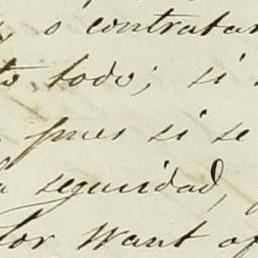 o contratar
todo; si
pues si se
seguridad,
for Want of